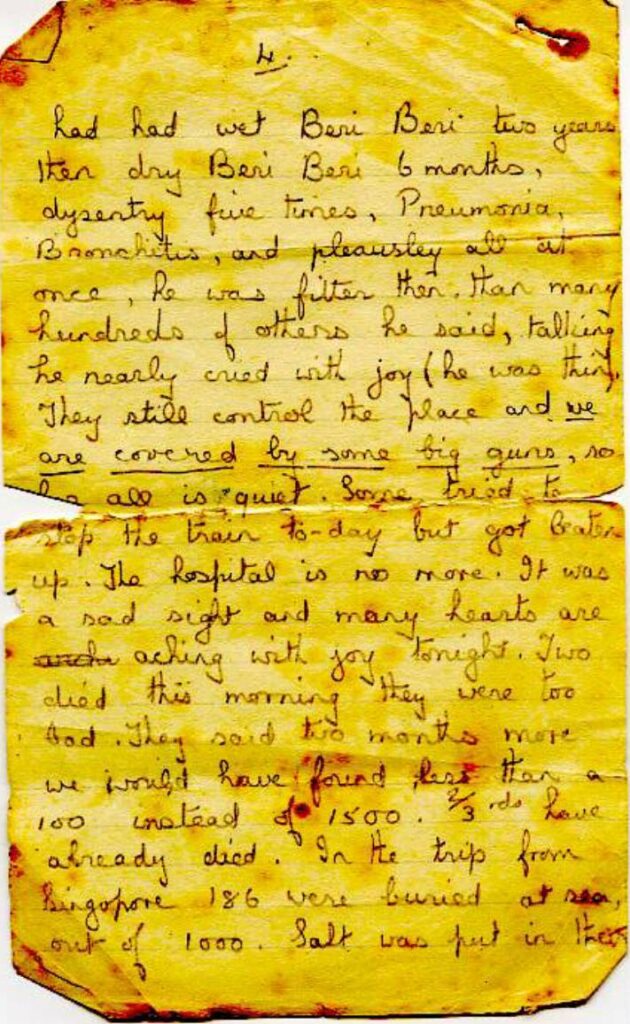 4.
had had wet Beri Beri two years
then dry Beri Beri 6 months,
dysentry five times, Pneumonia,
Bronchitis, and pleausley all at
once, he was fitter then, than many
hundreds of others he said, talking
he nearly cried with joy (he was thin).
They still control the place and we
are covered by some big guns, so
all is quiet. Some tried to
stop the train to-day but got beaten
up. The hospital is no more. It was
a sad sight and many hearts are
aching with joy tonight. Two
died this morning they were too
bad. They said two months more
we would have found less than a
100 instead of 1500. 2/3 rds have
already died. In the trip from
Singopore 186 were buried at sea,
out of 1000. Salt was put in their